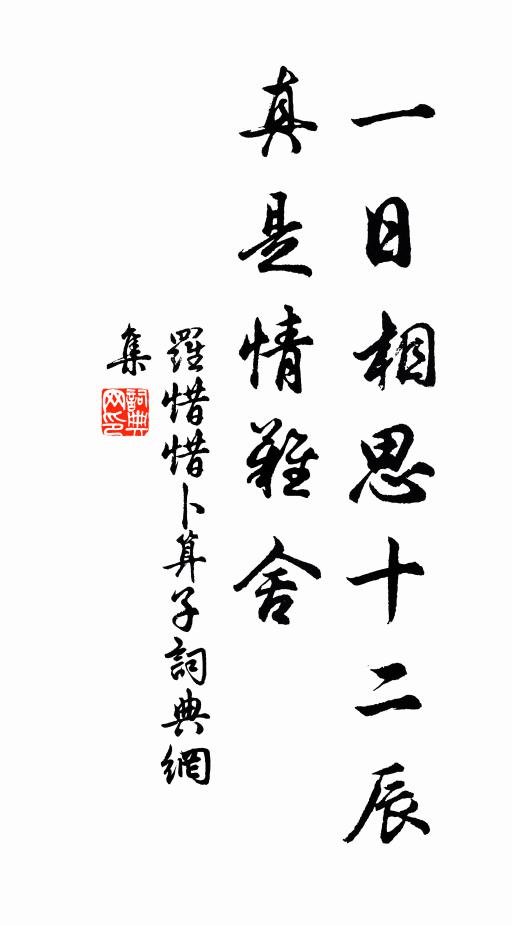 一日相思十二辰
真是情難舍
羅惜惜卜算子詞典網
集
詞典
網印